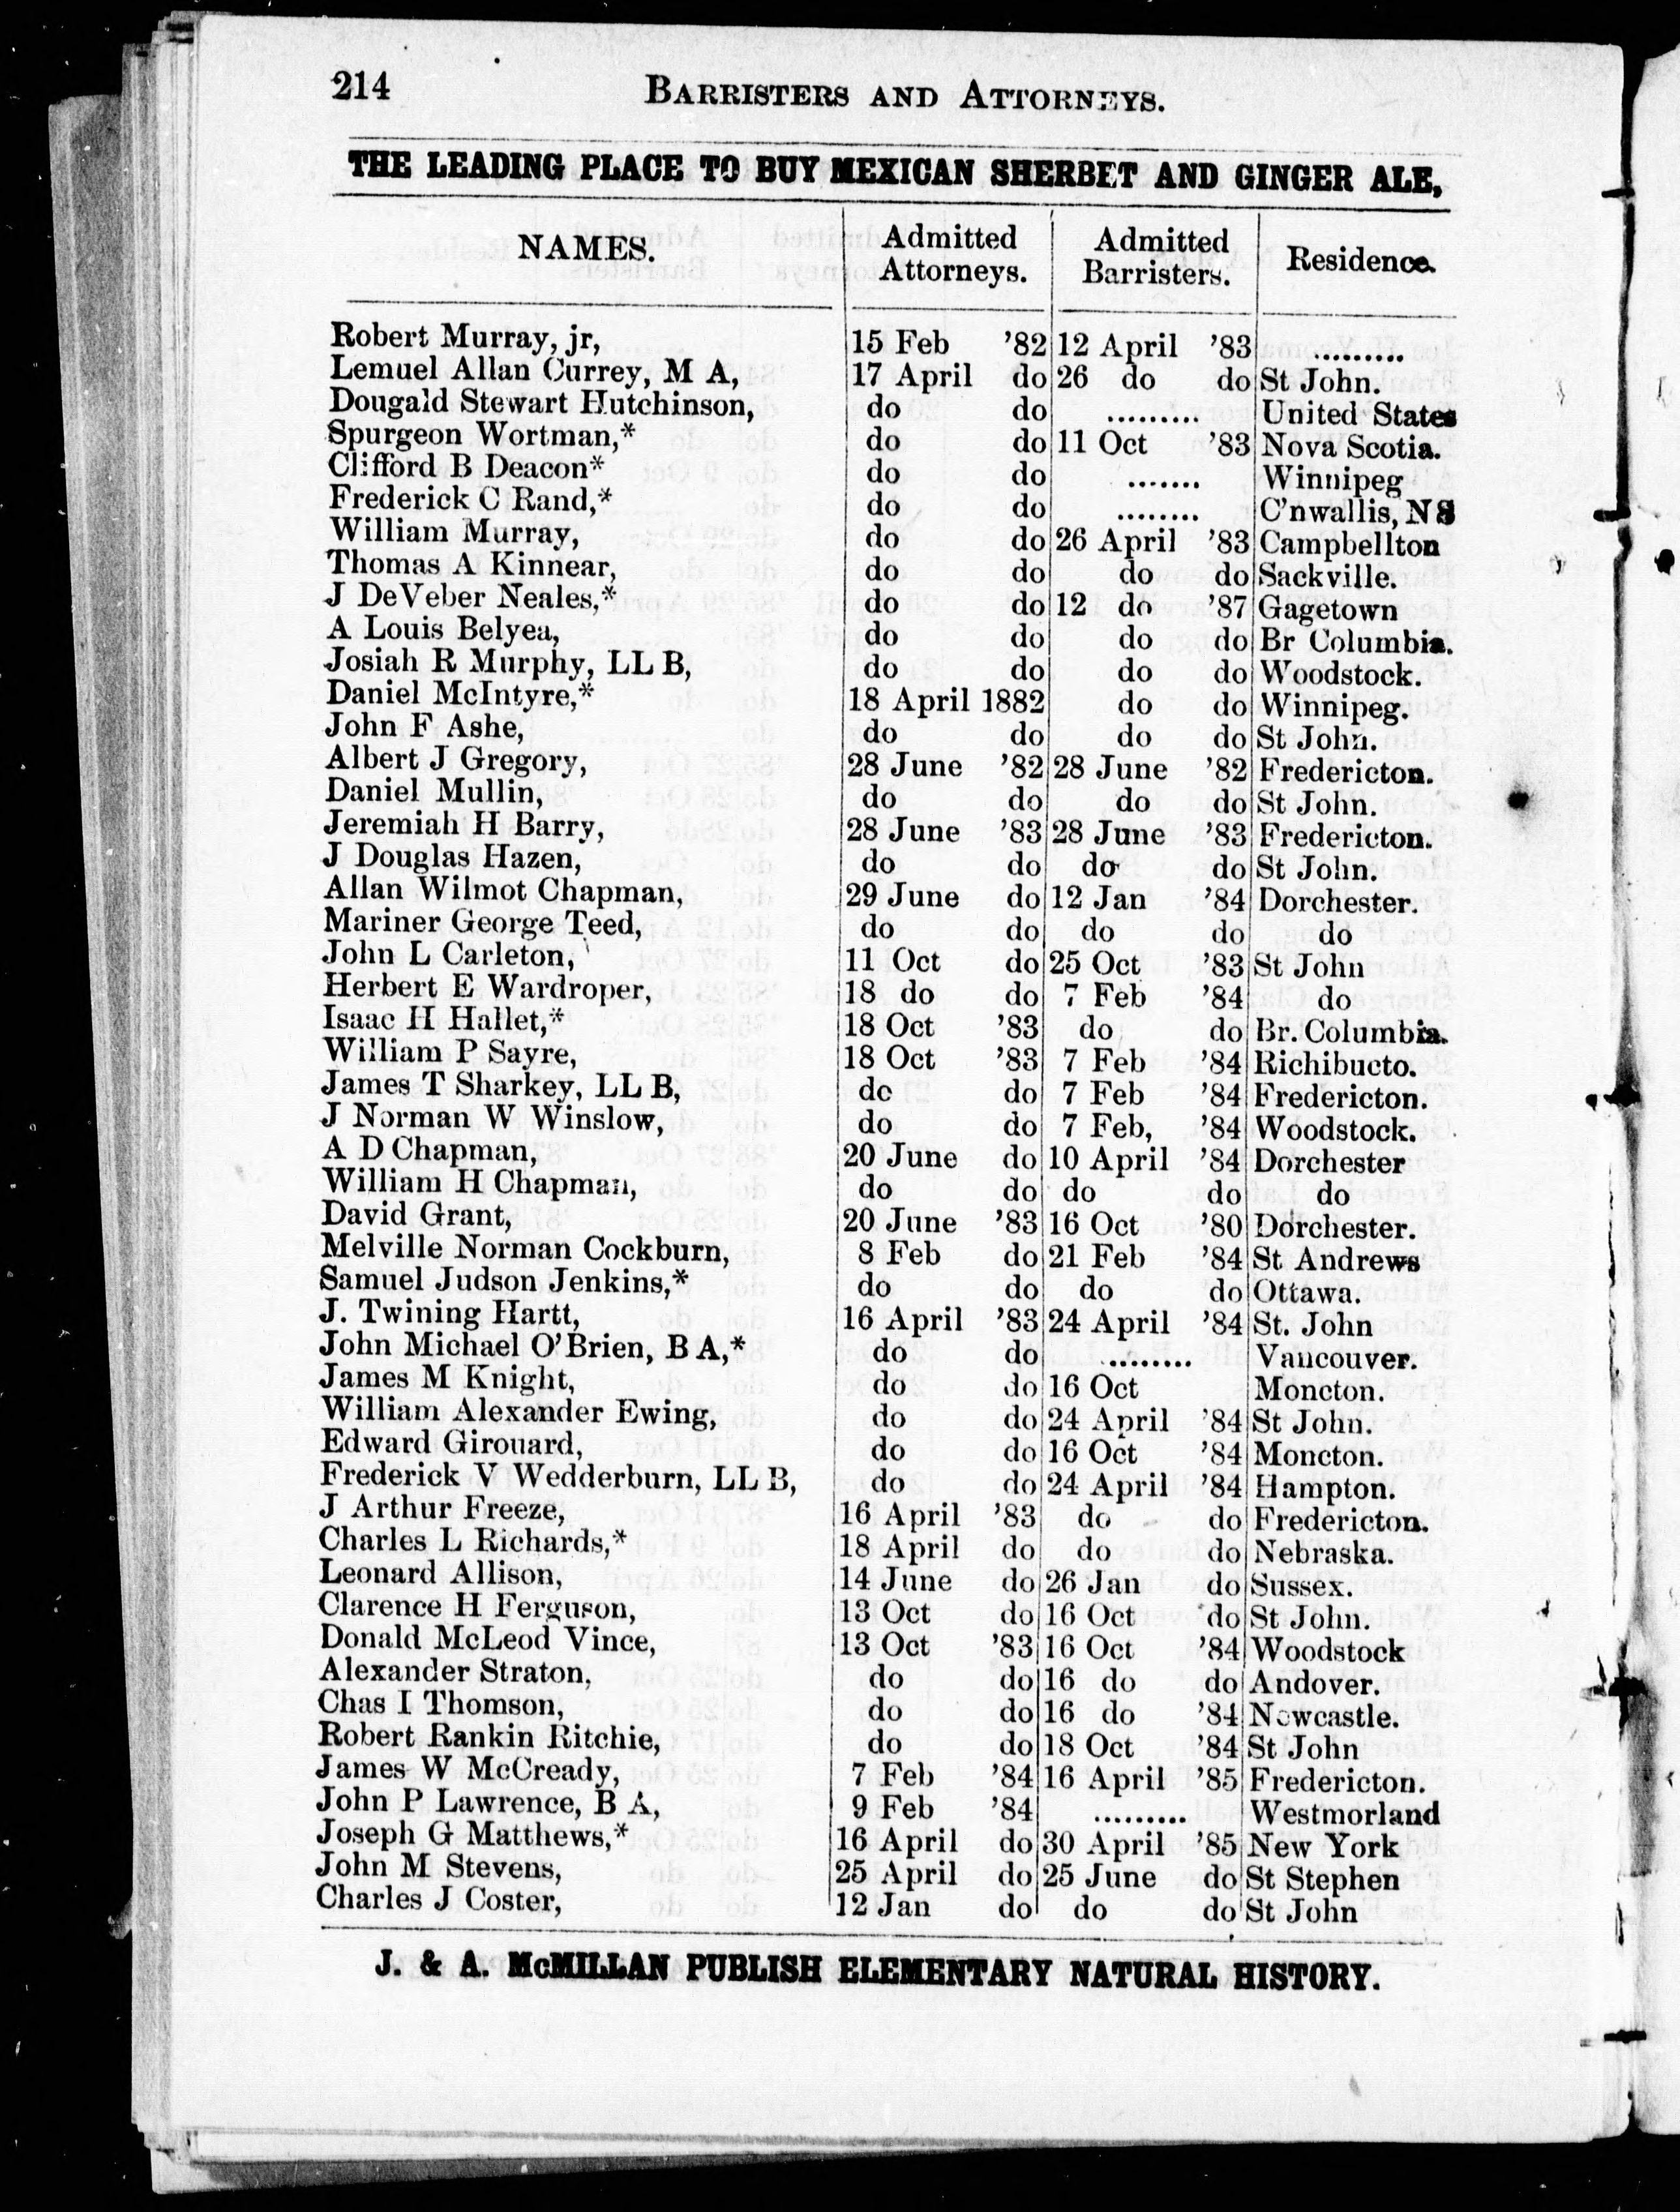 214 BARRISTERS AND ATTORNEYS.
THE LEADING PLACE TO BUY MEXICAN SHERBET AND GINGER ALE,
NAMES. Admitted Attorneys. Admitted Barristers. Residence.
Robert Murray, jr, 15 Feb '82 12 April '83 .........
Lemuel Allan Currey, M A, 17 April do 26 do do St John.
Dougald Stewart Hutchinson, do do ......... United States
Spurgeon Wortman,* do do 11 Oct '83 Nova Scotia.
Clifford B Deacon* do do ....... Winnipeg
Frederick C Rand,* do do ........ C'nwallis, N S
William Murray, do do 26 April '83 Campbellton
Thomas A Kinnear, do do do do Sackville.
J DeVeber Neales,* do do 12 do '87 Gagetown
A Louis Belyea, do do do do Br Columbia.
Josiah R Murphy, LL B, do do do do Woodstock.
Daniel McIntyre,* 18 April 1882 do do Winnipeg.
John F Ashe, do do do do St John.
Albert J Gregory, 28 June '82 28 June '82 Fredericton.
Daniel Mullin, do do do do St John.
Jeremiah H Barry, 28 June '83 28 June '83 Fredericton.
J Douglas Hazen, do do do do St John.
Allan Wilmot Chapman, 29 June do 12 Jan '84 Dorchester.
Mariner George Teed, do do do do do
John L Carleton, 11 Oct do 25 Oct '83 St John
Herbert E Wardroper, 18 do do 7 Feb '84 do
Isaac H Hallet,* 18 Oct '83 do do Br. Columbia.
William P Sayre, 18 Oct '83 7 Feb '84 Richibucto.
James T Sharkey, LL B, do do 7 Feb '84 Fredericton.
J Norman W Winslow, do do 7 Feb, '84 Woodstock.
A D Chapman, 20 June do 10 April '84 Dorchester
William H Chapman, do do do do do
David Grant, 20 June '83 16 Oct '80 Dorchester.
Melville Norman Cockburn, 8 Feb do 21 Feb '84 St Andrews
Samuel Judson Jenkins,* do do do do Ottawa.
J. Twining Hartt, 16 April '83 24 April '84 St. John
John Michael O'Brien, B A,* do do ......... Vancouver.
James M Knight, do do 16 Oct Moncton.
William Alexander Ewing, do do 24 April '84 St John.
Edward Girouard, do do 16 Oct '84 Moncton.
Frederick V Wedderburn, LL B, do do 24 April '84 Hampton.
J Arthur Freeze, 16 April '83 do do Fredericton.
Charles L Richards,* 18 April do do do Nebraska.
Leonard Allison, 14 June do 26 Jan do Sussex.
Clarence H Ferguson, 13 Oct do 16 Oct do St John.
Donald McLeod Vince, 13 Oct '83 16 Oct '84 Woodstock
Alexander Straton, do do 16 do do Andover.
Chas I Thomson, do do 16 do '84 Newcastle.
Robert Rankin Ritchie, do do 18 Oct '84 St John
James W McCready, 7 Feb '84 16 April '85 Fredericton.
John P Lawrence, B A, 9 Feb '84 ......... Westmorland
Joseph G Matthews,* 16 April do 30 April '85 New York
John M Stevens, 25 April do 25 June do St Stephen
Charles J Coster, 12 Jan do do do St John
J. & A. McMILLAN PUBLISH ELEMENTARY NATURAL HISTORY.